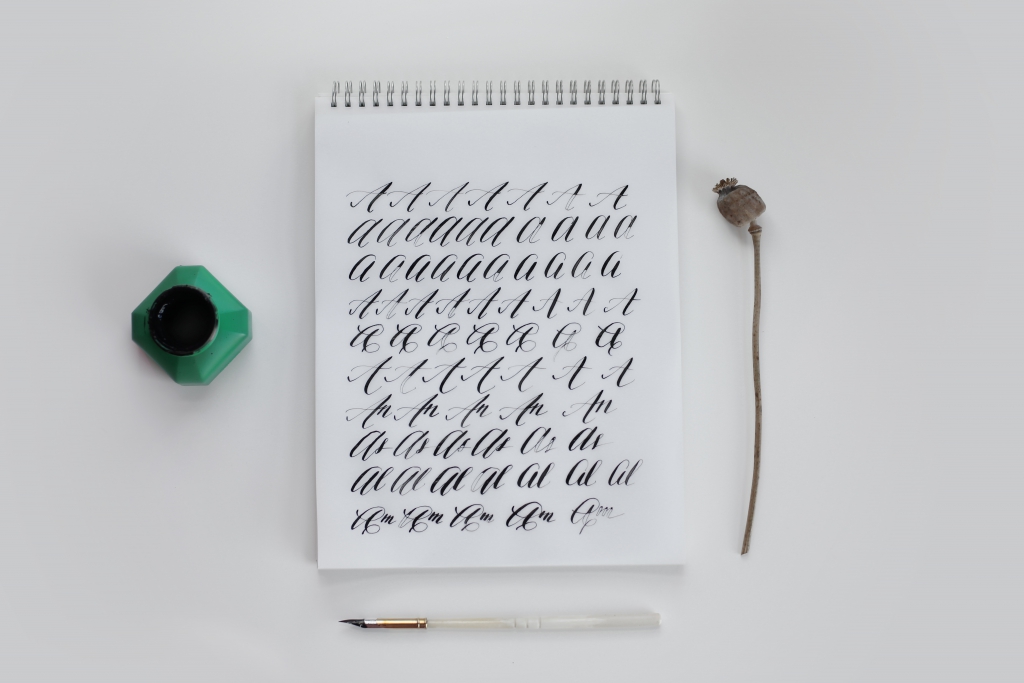 A A A A A A A
a a a a a a a a a a a
a a a a a a a a a a a
A A A A A A A A A
A A A A A A A
A A A A A A A
An An An An An
As As As As As As
Al Al Al Al Al Al Al
Am Am Am Am Am